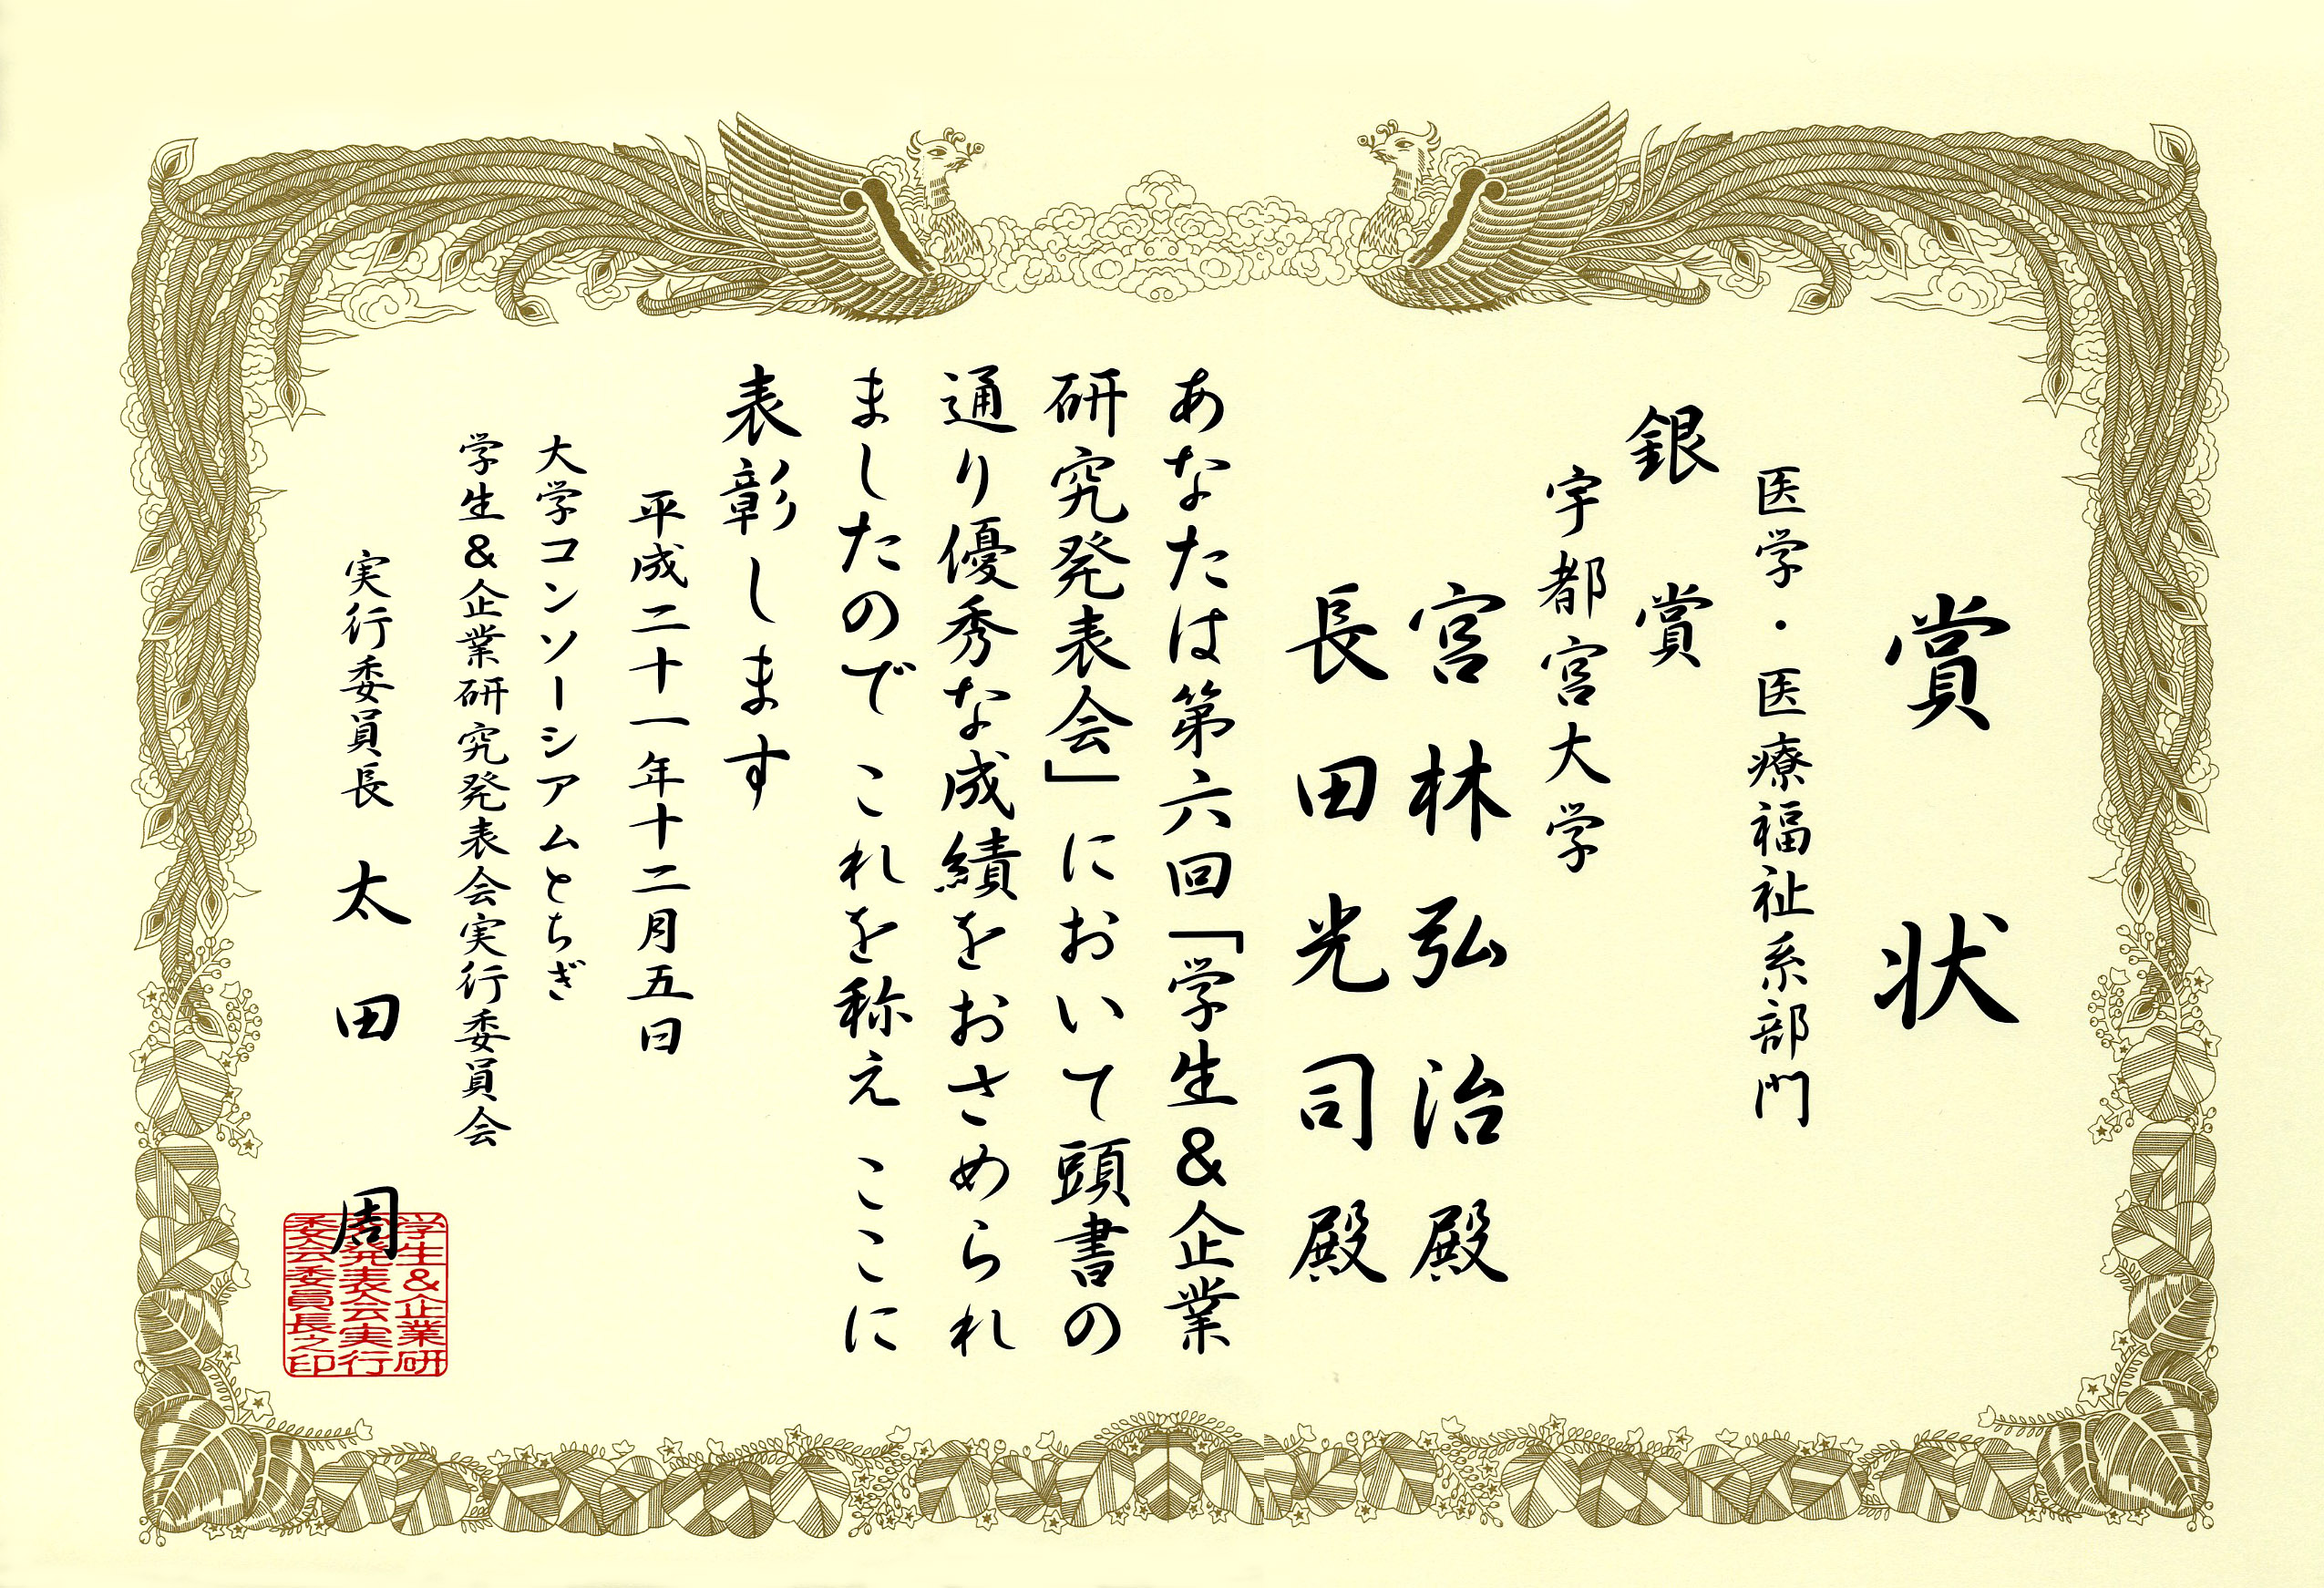 賞状
医学・医療福祉系部門
銀賞
宇都宮大学
宮林弘治殿
長田光司殿
あなたは第六回「学生&企業
研究発表会」において頭書の
通り優秀な成績をおさめられ
ましたのでこれを称えここに
表彰します
平成二十一年十二月五日
大学コンソーシアムとちぎ
学生&企業研究発表会実行委員会
実行委員長 太田 周
学生&企業研
究発表会実行
委会委員長之印